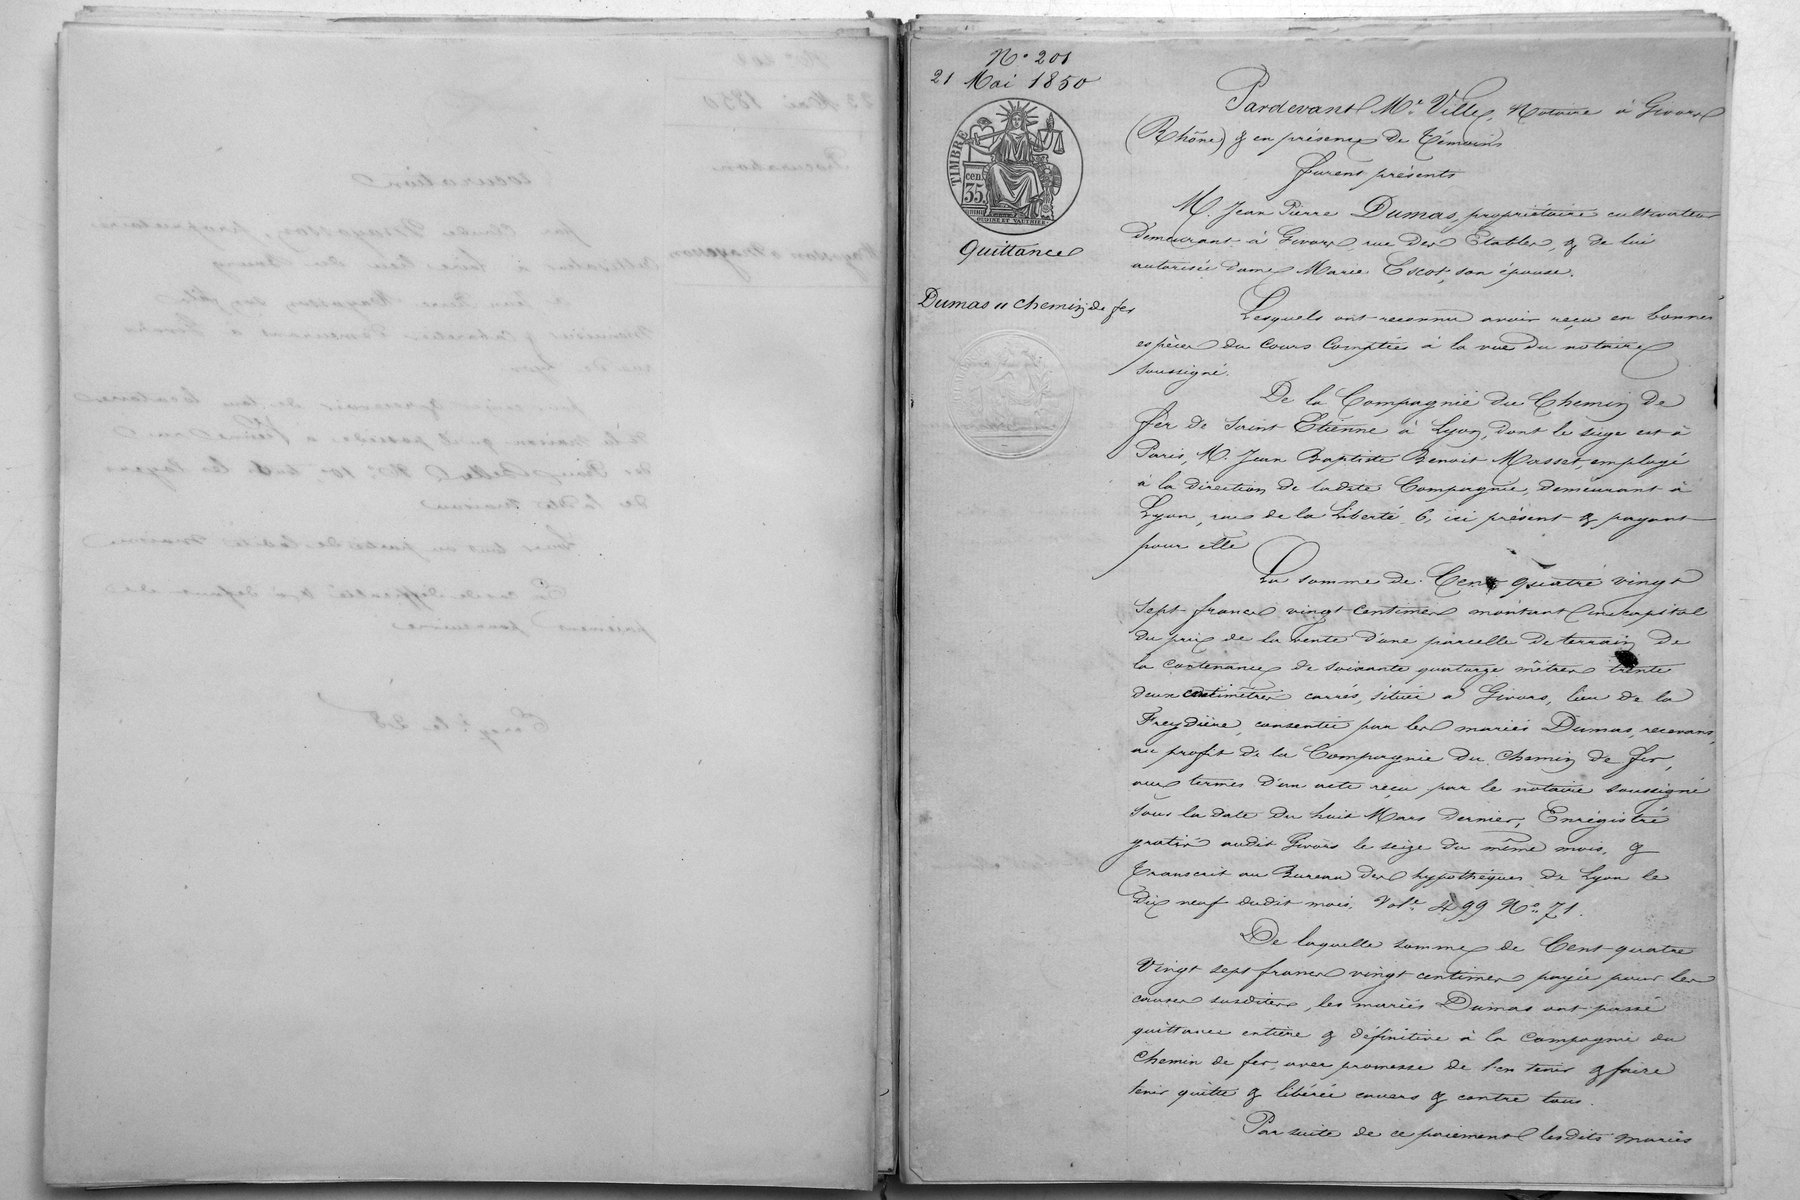 N.° 201
21 Mai 1850
TIMBRE
cen.
35
Quittance
Dumas " chemin de fer
Pardevant M.e Ville, Notaire à Givors
(Rhône) & en présence de Témoins
furent présents
M. Jean Pierre Dumas, propriétaire cultivateur
demeurant à Givors, rue des Etables, & de lui
autorisée dame Marie Escot, son épouse.
Lesquels ont reconnu avoir reçu en bonnes
espèces du cours comptées à la vue du notaire
soussigné.
De la Compagnie du Chemin de
fer de Saint Etienne à Lyon, dont le siège est à
Paris, M. Jean Baptiste Benoit Masset, employé
à la direction de ladite Compagnie, demeurant à
Lyon, rue de la Liberté 6, ici présent & payant
pour elle
La somme de Cent quatre vingt
sept francs vingt centimes montant en capital
du prix de la vente d'une parcelle de terrain de
la contenance de soixante quatorze mètres trente
deux centimètres carrés, située à Givors, lieu de la
Freydière, consentie par les mariés Dumas, recevans,
au profit de la Compagnie du chemin de fer,
aux termes d'un acte reçu par le notaire soussigné
sous la date du huit Mars dernier, Enregistré
gratis audit Givors le seize du même mois, &
transcrit au Bureau des hypothèques de Lyon le
dix neuf dudit mois, Vol.e 499 N.° 71.
De laquelle somme de Cent quatre
Vingt sept francs vingt centimes payée pour les
causes susdites, les mariés Dumas ont passé
quittance entière & définitive à la Compagnie du
Chemin de fer, avec promesse de l'en tenir & faire
tenir quitte & libérée envers & contre tous.
Par suite de ce paiement lesdits mariés